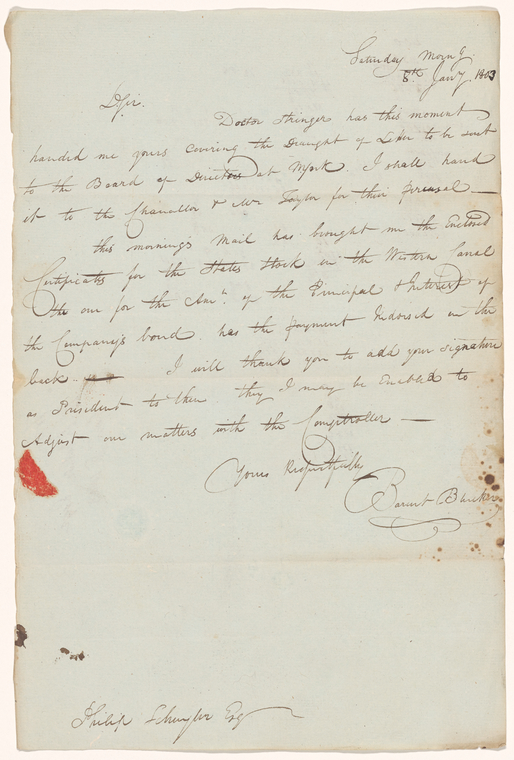 Saturday Morng.
8th Jany. 1803
D Sir.
Doctor Stringer has this moment
handed me yours covering the Draught of Letter to be sent
to the Board of Directors at NYork. I shall hand
it to the Chancellor & Mr. Taylor for their perusal —
this mornings Mail has brought me the Enclosed
Certificates for the States Stock in the Western Canal
the one for the Amt. of the Principal & Interest of
the Companys bond. has the payment Endorsed on the
back. I will thank you to add your signature
as President to them that I may be Enabled to
Adjust our matters with the Comptroller —
Yours Respectfully
Barent Bleecker
Philip Schuyler Esq